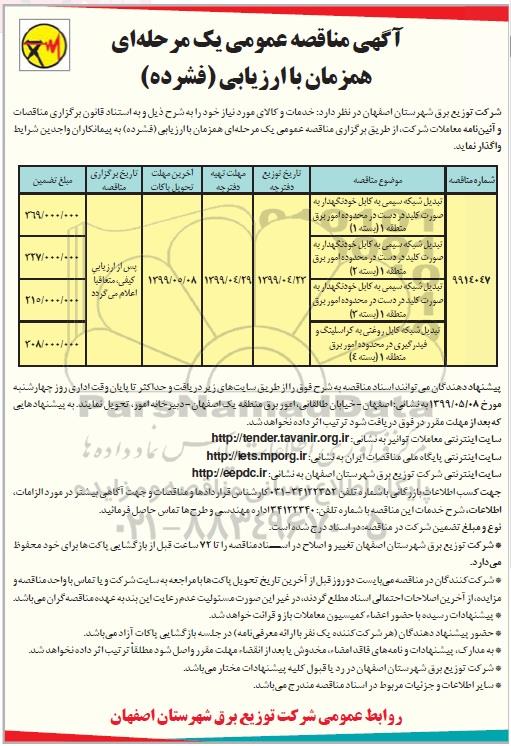 آگهی مناقصه عمومی یک مرحله‌ای
همزمان با ارزیابی (فشرده)
شرکت توزیع برق شهرستان اصفهان در نظر دارد: خدمات و کالای مورد نیاز خود را به شرح ذیل و به استناد قانون برگزاری مناقصات
و آئین‌نامه معاملات شرکت، از طریق برگزاری مناقصه عمومی یک مرحله‌ای همزمان با ارزیابی (فشرده) به پیمانکاران واجدین شرایط
واگذار نماید.
شماره مناقصه
موضوع مناقصه
تاریخ توزیع دفترچه
مهلت تهیه دفترچه
آخرین مهلت تحویل پاکات
تاریخ برگزاری مناقصه
مبلغ تضمین
۹۹۱۴۰۴۷
تبدیل شبکه سیمی به کابل خودنگهدار به
صورت کلید در دست در محدوده امور برق
منطقه ۱ (بسته ۱)
تبدیل شبکه سیمی به کابل خودنگهدار به
صورت کلید در دست در محدوده امور برق
منطقه ۱ (بسته ۲)
تبدیل شبکه سیمی به کابل خودنگهدار به
صورت کلید در دست در محدوده امور برق
منطقه ۱ (بسته ۳)
تبدیل شبکه کابل روغنی به کراسلینک و
فیدرگیری در محدوده امور برق
منطقه ۱ (بسته ٤)
۱۳۹۹/۰۴/۲۳
۱۳۹۹/۰۴/۲۹
۱۳۹۹/۰۵/۰۸
پس از ارزیابی
کیفی، متعاقبا
اعلام می گردد
۳۶۹/۰۰۰/۰۰۰
۳۲۷/۰۰۰/۰۰۰
۲۱۵/۰۰۰/۰۰۰
۳۰۸/۰۰۰/۰۰۰
پیشنهاد دهندگان می‌توانند اسناد مناقصه به شرح فوق را از طریق سایت‌های زیر دریافت و حداکثر تا پایان وقت اداری روز چهارشنبه
مورخ ۱۳۹۹/۰۵/۰۸ به نشانی: اصفهان - خیابان طالقانی، امور برق منطقه یک اصفهان - دبیرخانه امور، تحویل نمایند. به پیشنهادهایی
که بعد از مهلت مقرر در فوق دریافت شود ترتیب اثر داده نخواهد شد.
سایت اینترنتی معاملات توانیر به نشانی: http://tender.tavanir.org.ir
سایت اینترنتی پایگاه ملی مناقصات ایران به نشانی: http://iets.mporg.ir
سایت اینترنتی شرکت توزیع برق شهرستان اصفهان به نشانی: http://eepdc.ir
جهت کسب اطلاعات بازرگانی با شماره تلفن ۳۴۱۲۲۳۵۲-۰۳۱ کارشناس قراردادها و مناقصات و جهت آگاهی بیشتر در مورد الزامات،
اطلاعات، شرح خدمات این مناقصه با شماره تلفن: ۳۴۱۲۲۳۴۰ اداره مهندسی و طرح‌ها تماس حاصل فرمائید.
نوع و مبلغ تضمین شرکت در مناقصه: در اسناد درج شده است.
* شرکت توزیع برق شهرستان اصفهان تغییر و اصلاح در اسناد مناقصه را تا ۷۲ ساعت قبل از بازگشایی پاکت‌ها برای خود محفوظ
می‌دارد.
* شرکت‌کنندگان در مناقصه می‌بایست دو روز قبل از آخرین تاریخ تحویل پاکت‌ها با مراجعه به سایت شرکت و یا تماس با واحد مناقصه و
مزایده، از آخرین اصلاحات احتمالی اسناد مطلع گردند، در غیر این صورت مسئولیت عدم رعایت این بند به عهده مناقصه‌گران می‌باشد.
* پیشنهادات رسیده با حضور اعضاء کمیسیون معاملات باز و قرائت خواهد شد.
* حضور پیشنهاد دهندگان (هر شرکت کننده یک نفر با ارائه معرفی‌نامه) در جلسه بازگشایی پاکات آزاد می‌باشد.
* به مدارک، پیشنهادات و نامه‌های فاقد امضاء، مخدوش یا بعد از انقضاء مهلت مقرر واصل شود مطلقاً ترتیب اثر داده نخواهد شد.
* شرکت توزیع برق شهرستان اصفهان در رد یا قبول کلیه پیشنهادات مختار می‌باشد.
* سایر اطلاعات و جزئیات مربوط در اسناد مناقصه مندرج می‌باشد.
روابط عمومی شرکت توزیع برق شهرستان اصفهان